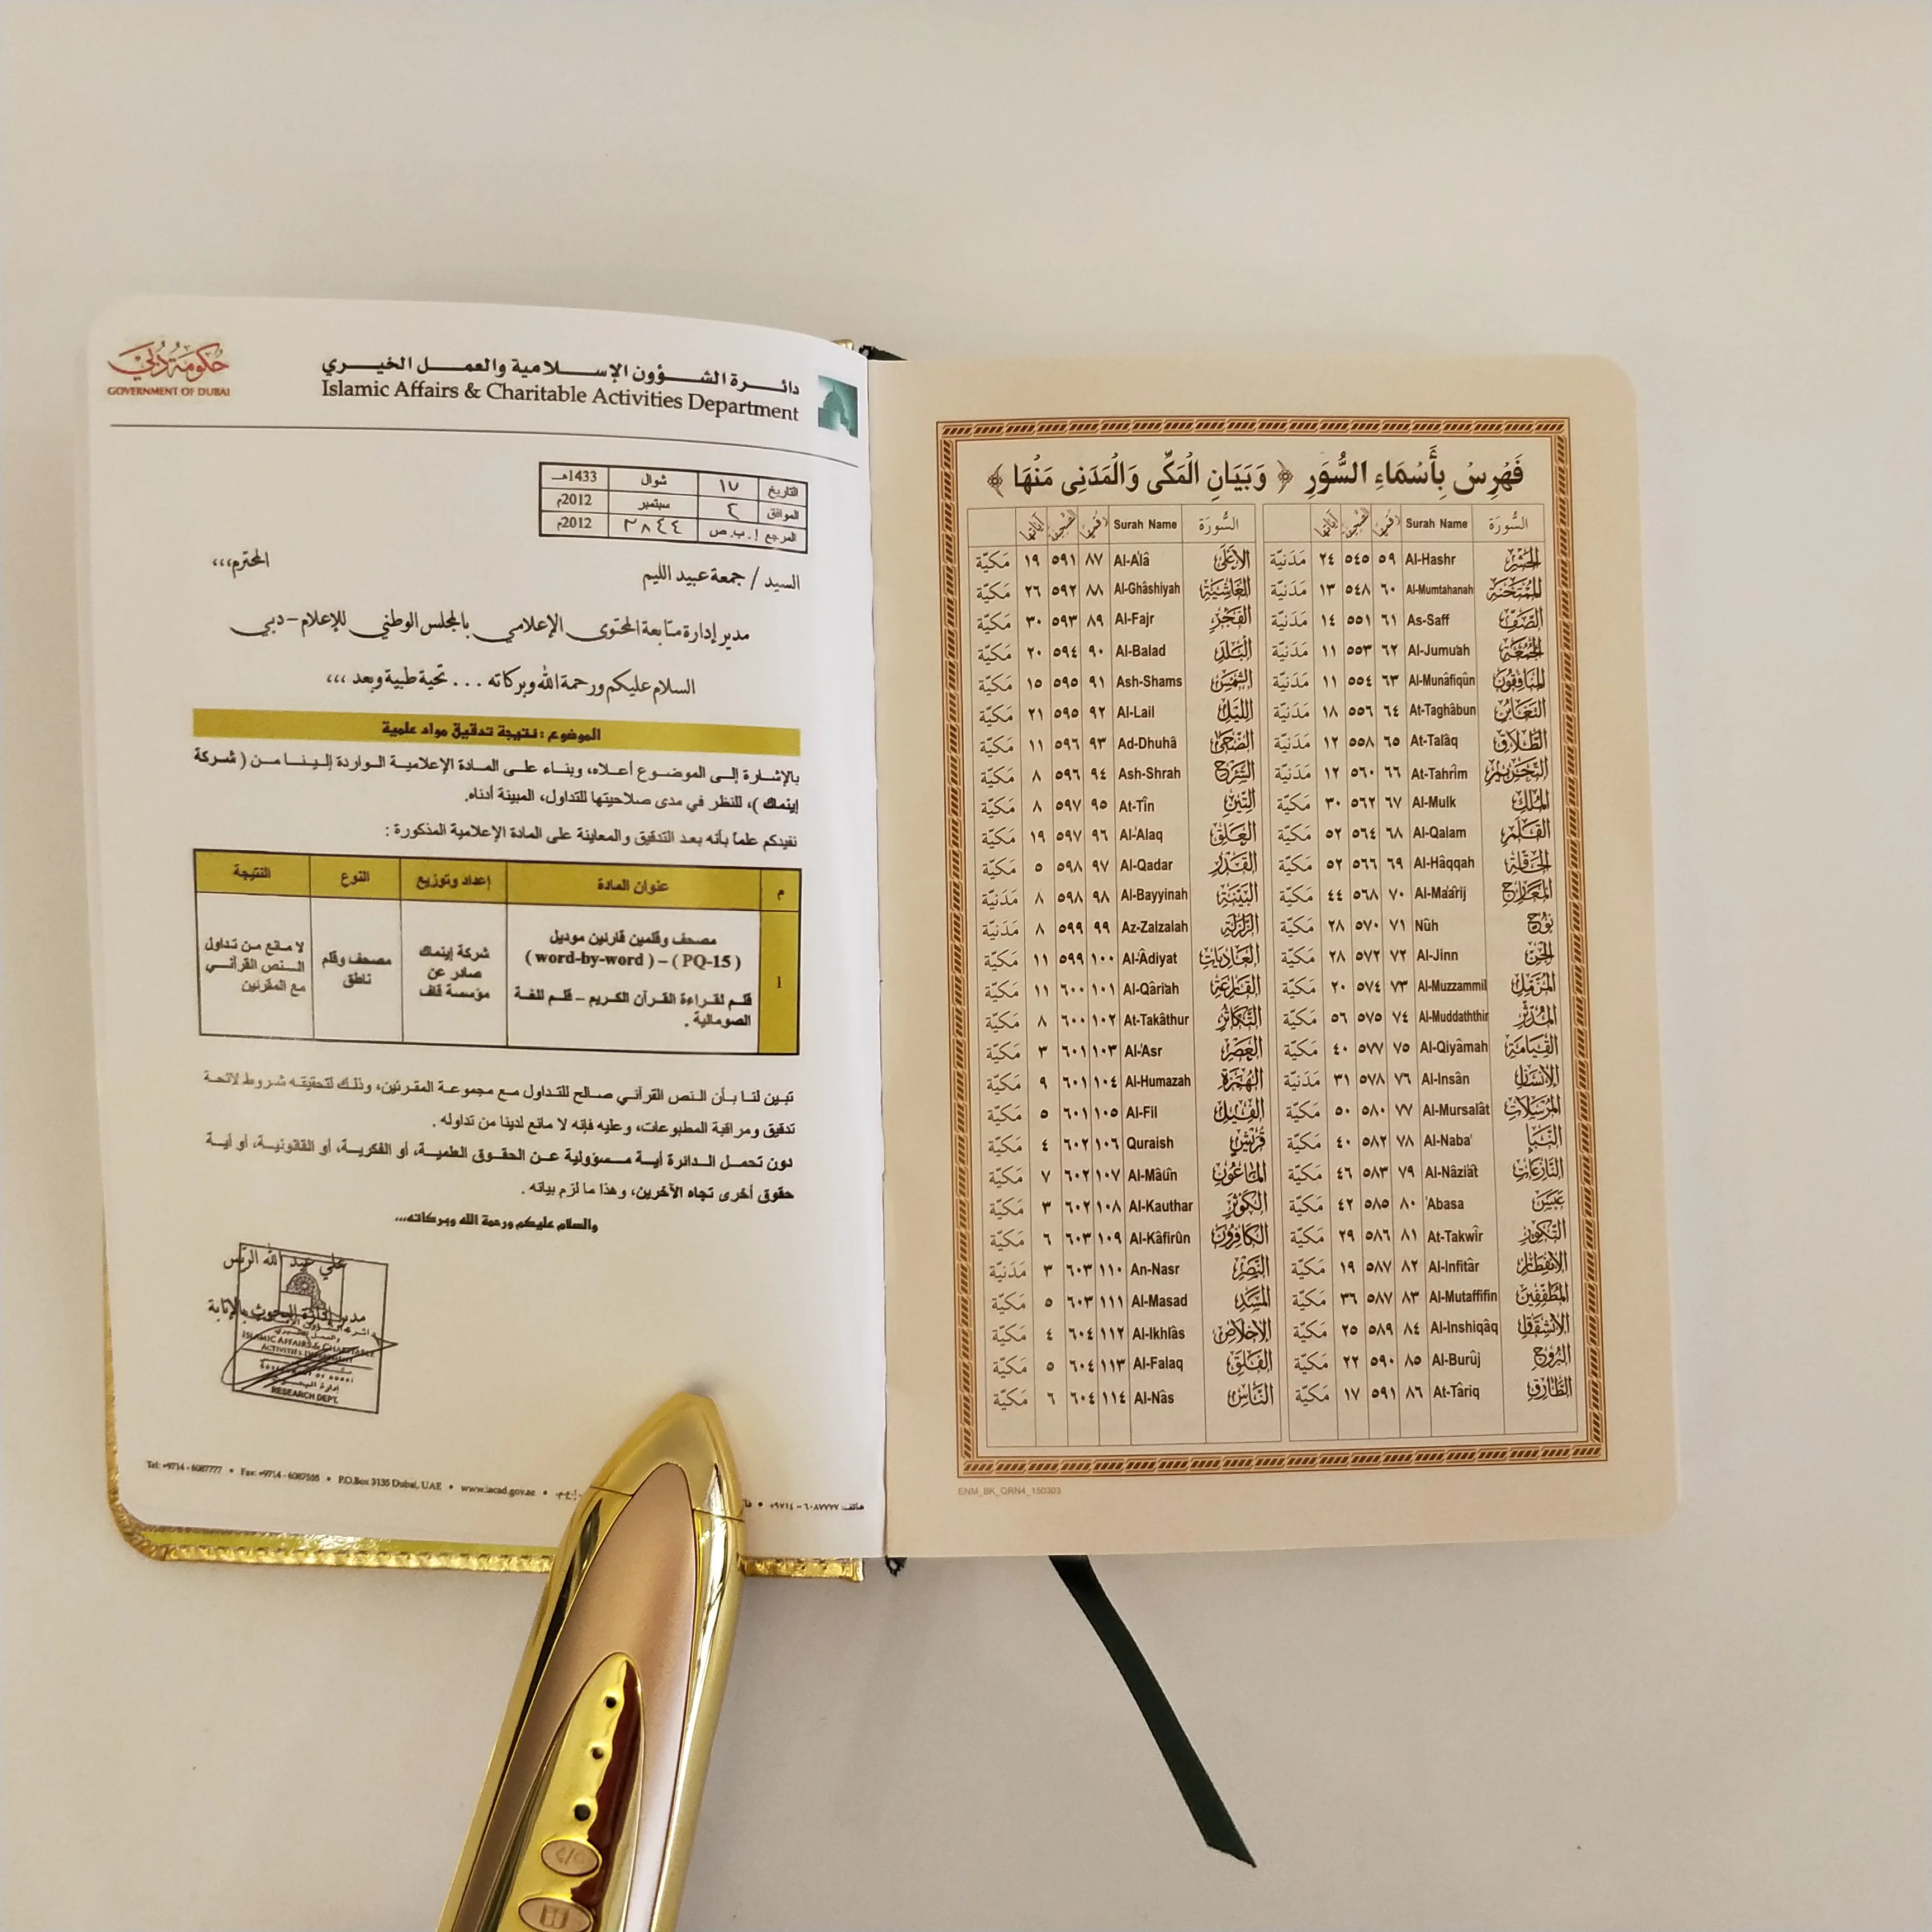 حكومة دبي
GOVERNMENT OF DUBAI
دائرة الشؤون الإسلامية والعمل الخيري
Islamic Affairs & Charitable Activities Department
التاريخ ١٧ شوال 1433هـ
الموافق ٤ سبتمبر 2012م
المرجع ا.ب.ص ٢٨٤٤ 2012م
السيد / جمعة عبيد الليم المحترم،،،
مدير إدارة متابعة المحتوى الإعلامي بالمجلس الوطني للإعلام - دبي
السلام عليكم ورحمة الله وبركاته ... تحية طيبة وبعد ،،،
الموضوع : نتيجة تدقيق مواد علمية
بالإشارة إلى الموضوع أعلاه، وبناء على المادة الإعلامية الواردة إلينا من ( شركة
إينماك )، للنظر في مدى صلاحيتها للتداول، المبينة أدناه.
نفيدكم علماً بأنه بعد التدقيق والمعاينة على المادة الإعلامية المذكورة :
م عنوان المادة إعداد وتوزيع النوع النتيجة
1 مصحف وقلمين قارئين موديل
(word-by-word) – (PQ-15)
قلم لقراءة القرآن الكريم – قلم للغة
الصومالية .
شركة إينماك
صادر عن
مؤسسة قاف
مصحف وقلم
ناطق
لا مانع من تداول
النص القرآني
مع المقرئين
تبين لنا بأن النص القرآني صالح للتداول مع مجموعة المقرئين، وذلك لتحقيقه شروط لائحة
تدقيق ومراقبة المطبوعات، وعليه فإنه لا مانع لدينا من تداوله .
دون تحمل الدائرة أية مسؤولية عن الحقوق العلمية، أو الفكرية، أو القانونية، أو أية
حقوق أخرى تجاه الآخرين، وهذا ما لزم بيانه .
والسلام عليكم ورحمة الله وبركاته...
علي عبد الله الريس
مدير إدارة البحوث بالإنابة
ISLAMIC AFFAIRS & CHARITABLE
ACTIVITIES DEPARTMENT
إدارة البحوث
RESEARCH DEPT.
Tel: +9714 - 6087777 • Fax: +9714 - 6087555 • P.O.Box 3135 Dubai, UAE • www.iacad.gov.ae •
هاتف: ٦٠٨٧٧٧٧ - ٩٧١٤+
فَهْرِسْ بِأَسْمَاءِ السُّوَرِ ﴿ وَبَيَانِ الْمَكِّى وَالْمَدَنِى مَنْهَا ﴾
السُّورَة Surah Name رقمها الصفحة آياتها
الحَشْر Al-Hashr ٥٩ ٥٤٥ ٢٤ مَدَنيّة
المُمْتَحنَة Al-Mumtahanah ٦٠ ٥٤٨ ١٣ مَدَنيّة
الصَّف As-Saff ٦١ ٥٥١ ١٤ مَدَنيّة
الجُمُعَة Al-Jumu'ah ٦٢ ٥٥٣ ١١ مَدَنيّة
المنَافِقون Al-Munâfiqûn ٦٣ ٥٥٤ ١١ مَدَنيّة
التغَابُن At-Taghâbun ٦٤ ٥٥٦ ١٨ مَدَنيّة
الطَّلَاق At-Talâq ٦٥ ٥٥٨ ١٢ مَدَنيّة
التّحْريم At-Tahrîm ٦٦ ٥٦٠ ١٢ مَدَنيّة
المُلك Al-Mulk ٦٧ ٥٦٢ ٣٠ مَكيّة
القَلَم Al-Qalam ٦٨ ٥٦٤ ٥٢ مَكيّة
الحَاقَّة Al-Hâqqah ٦٩ ٥٦٦ ٥٢ مَكيّة
المعَارج Al-Ma'ârij ٧٠ ٥٦٨ ٤٤ مَكيّة
نُوح Nûh ٧١ ٥٧٠ ٢٨ مَكيّة
الجنّ Al-Jinn ٧٢ ٥٧٢ ٢٨ مَكيّة
المُزَّمل Al-Muzzammil ٧٣ ٥٧٤ ٢٠ مَكيّة
المُدَّثّر Al-Muddaththir ٧٤ ٥٧٥ ٥٦ مَكيّة
القِيَامَة Al-Qiyâmah ٧٥ ٥٧٧ ٤٠ مَكيّة
الانسَان Al-Insân ٧٦ ٥٧٨ ٣١ مَدَنيّة
المُرْسَلات Al-Mursalât ٧٧ ٥٨٠ ٥٠ مَكيّة
النّبَأ Al-Naba' ٧٨ ٥٨٢ ٤٠ مَكيّة
النّازعَات Al-Nâzi'ât ٧٩ ٥٨٣ ٤٦ مَكيّة
عَبَسَ 'Abasa ٨٠ ٥٨٥ ٤٢ مَكيّة
التّكوير At-Takwîr ٨١ ٥٨٦ ٢٩ مَكيّة
الانفِطار Al-Infitâr ٨٢ ٥٨٧ ١٩ مَكيّة
المطفّفِين Al-Mutaffifin ٨٣ ٥٨٧ ٣٦ مَكيّة
الانْشقَاق Al-Inshiqâq ٨٤ ٥٨٩ ٢٥ مَكيّة
البرُوج Al-Burûj ٨٥ ٥٩٠ ٢٢ مَكيّة
الطّارق At-Târiq ٨٦ ٥٩١ ١٧ مَكيّة
السُّورَة Surah Name رقمها الصفحة آياتها
الأعْلَى Al-A'lâ ٨٧ ٥٩١ ١٩ مَكيّة
الغَاشِيَة Al-Ghâshiyah ٨٨ ٥٩٢ ٢٦ مَكيّة
الفَجْر Al-Fajr ٨٩ ٥٩٣ ٣٠ مَكيّة
البَلَد Al-Balad ٩٠ ٥٩٤ ٢٠ مَكيّة
الشّمْس Ash-Shams ٩١ ٥٩٥ ١٥ مَكيّة
الليْل Al-Lail ٩٢ ٥٩٥ ٢١ مَكيّة
الضّحَى Ad-Dhuhâ ٩٣ ٥٩٦ ١١ مَكيّة
الشَّرْح Ash-Shrah ٩٤ ٥٩٦ ٨ مَكيّة
التّين At-Tîn ٩٥ ٥٩٧ ٨ مَكيّة
العَلَق Al-'Alaq ٩٦ ٥٩٧ ١٩ مَكيّة
القَدْر Al-Qadar ٩٧ ٥٩٨ ٥ مَكيّة
البَيّنَة Al-Bayyinah ٩٨ ٥٩٨ ٨ مَدَنيّة
الزّلزَلة Az-Zalzalah ٩٩ ٥٩٩ ٨ مَدَنيّة
العَاديَات Al-'Âdiyat ١٠٠ ٥٩٩ ١١ مَكيّة
القَارعَة Al-Qâri'ah ١٠١ ٦٠٠ ١١ مَكيّة
التّكاثُر At-Takâthur ١٠٢ ٦٠٠ ٨ مَكيّة
العَصْر Al-'Asr ١٠٣ ٦٠١ ٣ مَكيّة
الهُمَزة Al-Humazah ١٠٤ ٦٠١ ٩ مَكيّة
الفِيل Al-Fil ١٠٥ ٦٠١ ٥ مَكيّة
قُرَيش Quraish ١٠٦ ٦٠٢ ٤ مَكيّة
الماعُون Al-Mâ'ûn ١٠٧ ٦٠٢ ٧ مَكيّة
الكَوثَر Al-Kauthar ١٠٨ ٦٠٢ ٣ مَكيّة
الكافِرون Al-Kâfirûn ١٠٩ ٦٠٣ ٦ مَكيّة
النّصر An-Nasr ١١٠ ٦٠٣ ٣ مَدَنيّة
المَسَد Al-Masad ١١١ ٦٠٣ ٥ مَكيّة
الإخلاص Al-Ikhlâs ١١٢ ٦٠٤ ٤ مَكيّة
الفَلَق Al-Falaq ١١٣ ٦٠٤ ٥ مَكيّة
النّاس Al-Nâs ١١٤ ٦٠٤ ٦ مَكيّة
ENM_BK_QRN4_150303